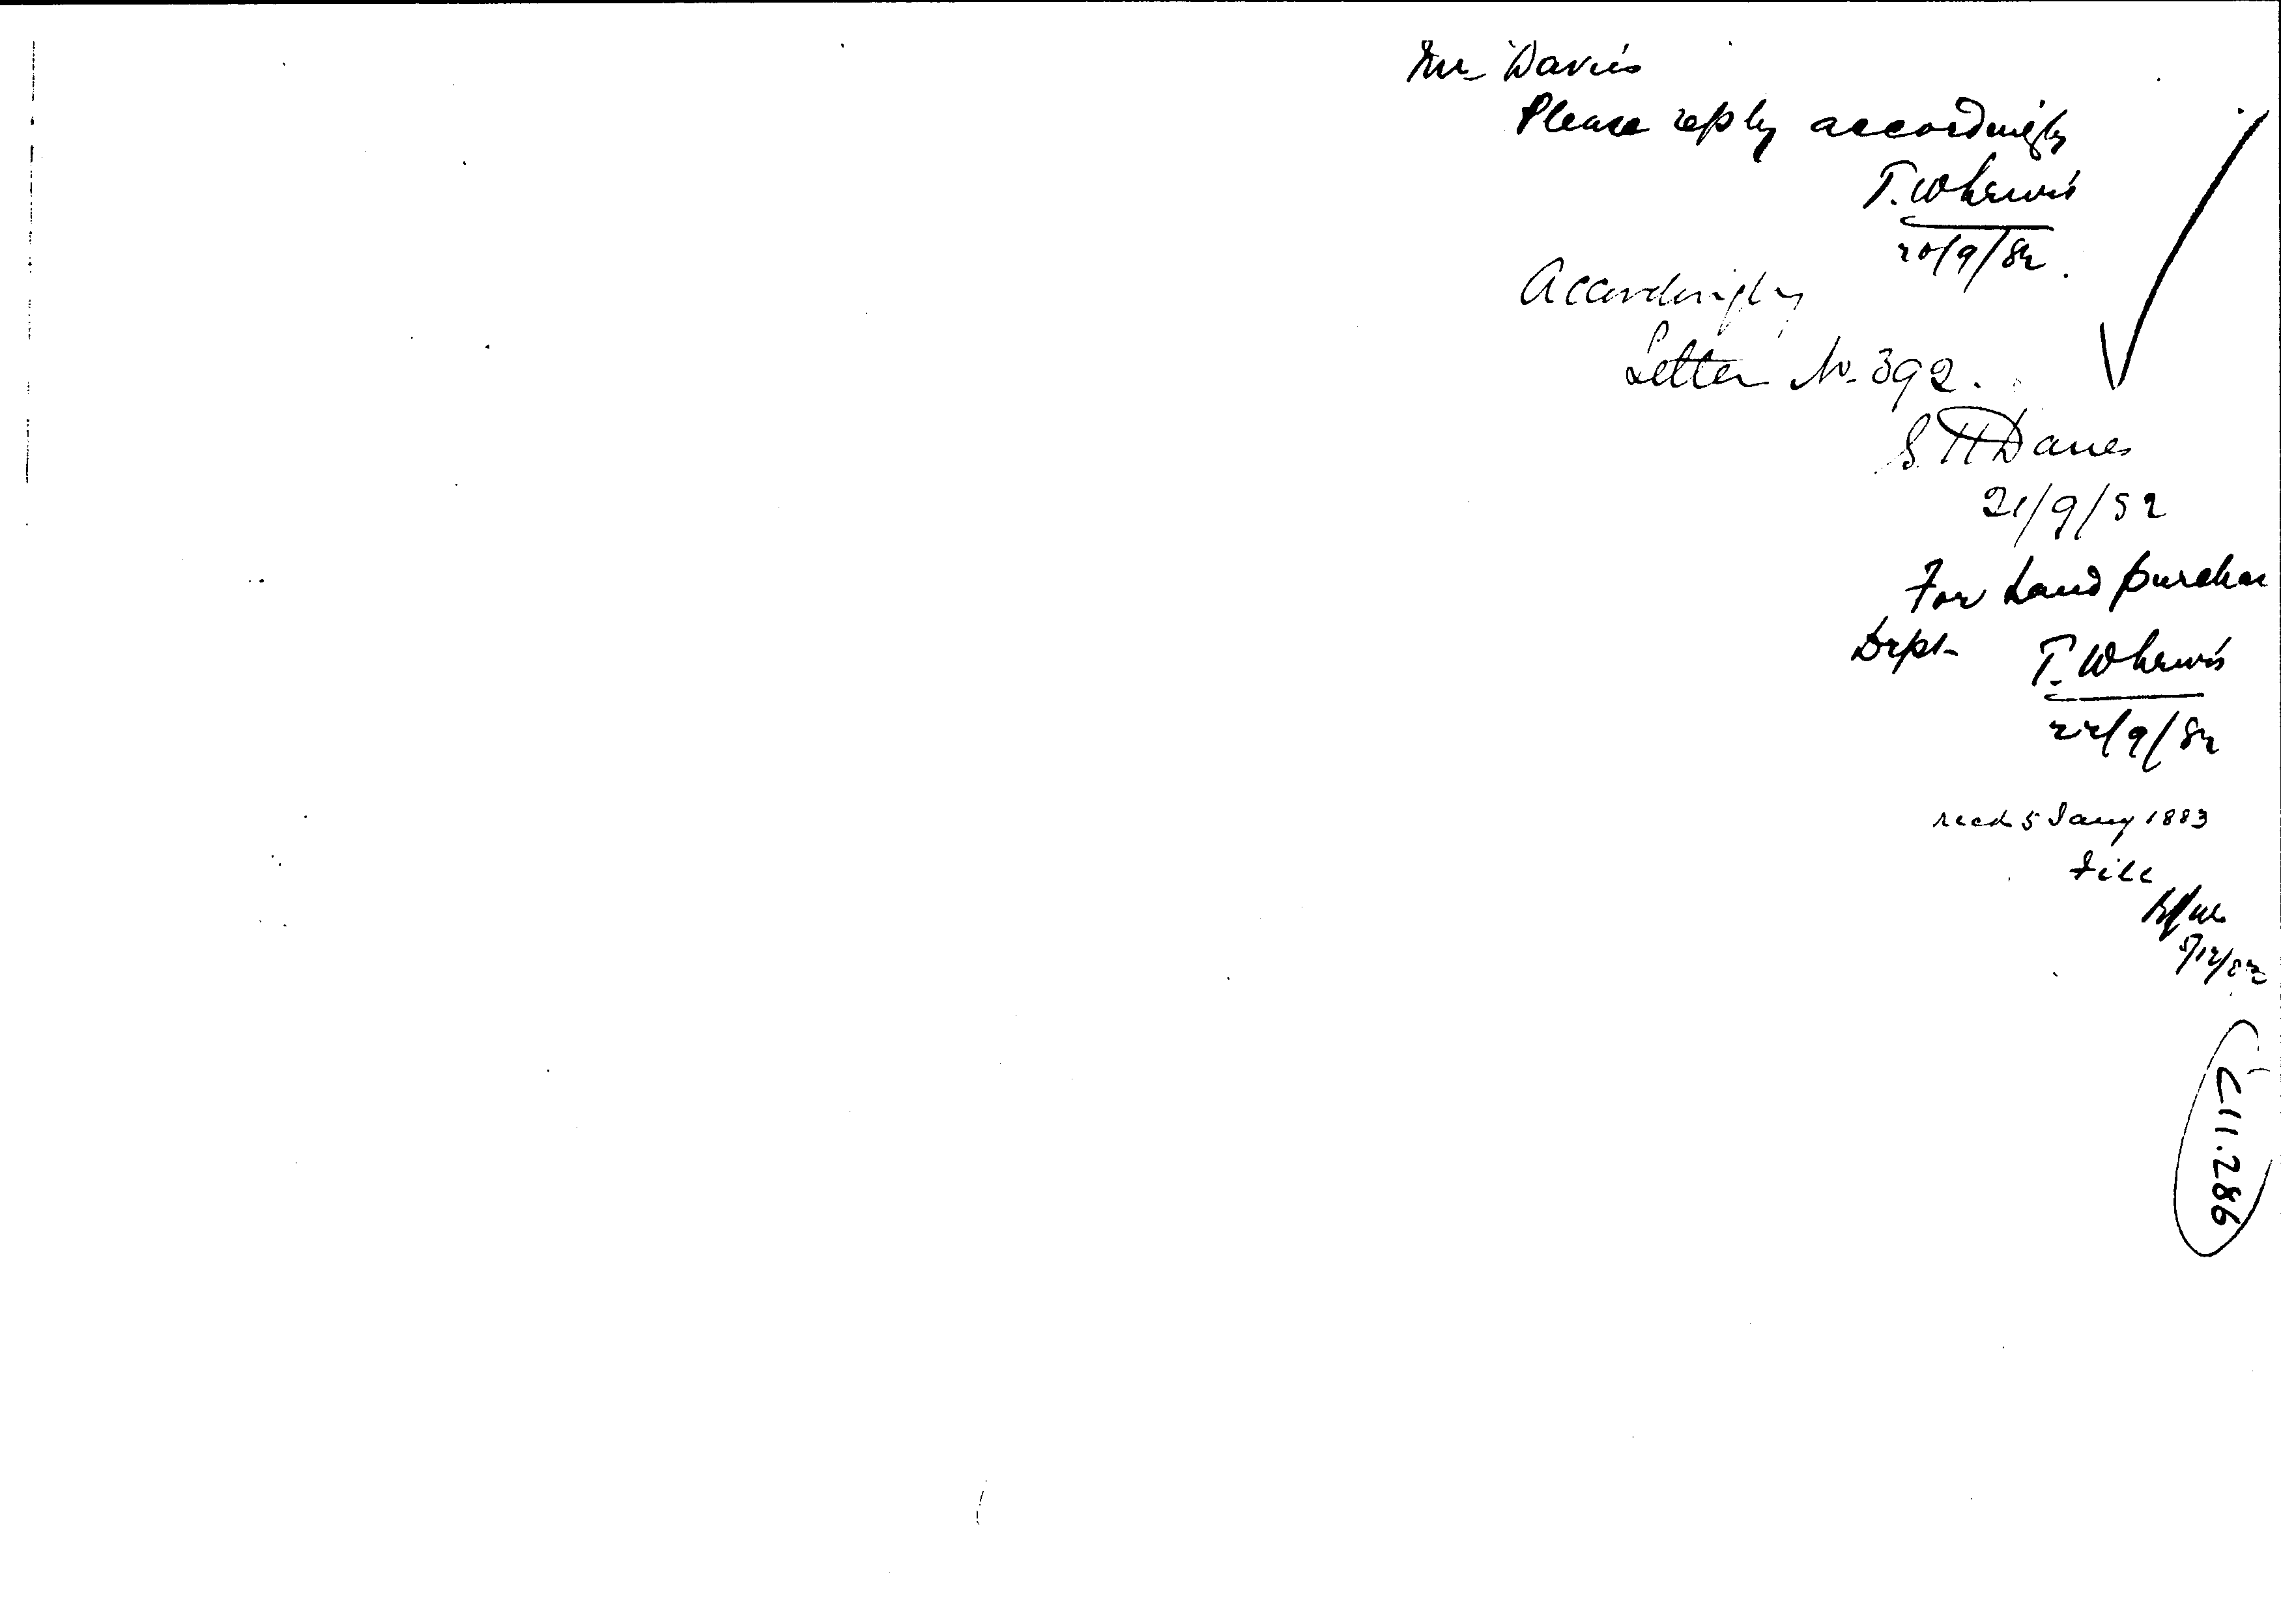 Mr Davis
Please reply accordingly
T. W Lewis
20/9/82.
Accordingly
Letter No. 392.
S. H Davies
21/9/82
For Land purchase
Dept T. W Lewis
22/9/82
recd 5 Jany 1883
File
5/12/82
C11.286